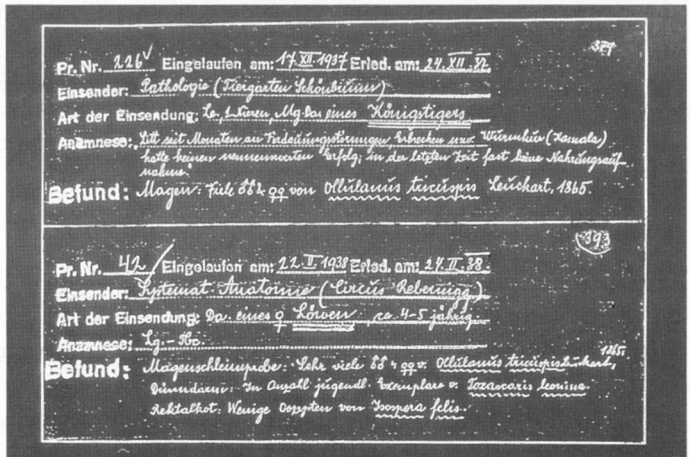 379
Pr. Nr. 226 Eingelaufen am: 17.XII.1937 Erled. am: 24.XII.37.
Einsender: Pathologie (Tiergarten Schönbrunn)
Art der Einsendung: Le, 2 Nieren, Mg-Da eines Königstigers
Anamnese: "Litt seit Monaten an Verdauungsstörungen Erbrechen usw. Wurmkur (Kamala)
hatte keinen nennenswerten Erfolg; in der letzten Zeit fast keine Nahrungsauf-
nahme."
Befund: Magen: Viele ♂♂ & ♀♀ von Ollulanus tricuspis Leuckart, 1865.
393
Pr. Nr. 42 Eingelaufen am: 22.II.1938 Erled. am: 24.II.38.
Einsender: Systemat. Anatomie (Circus Rebernigg)
Art der Einsendung: Da. eines ♀ Löwen, ca. 4-5 jährig
Anamnese: Lg.-Tbc.
Befund: Magenschleimprobe: Sehr viele ♂♂ & ♀♀ v. Ollulanus tricuspis Leuckart, 1865.
Dünndarm: In Anzahl jugendl. Exemplare v. Toxascaris leonina.
Rektalkot: Wenige Oozysten von Isospora felis.